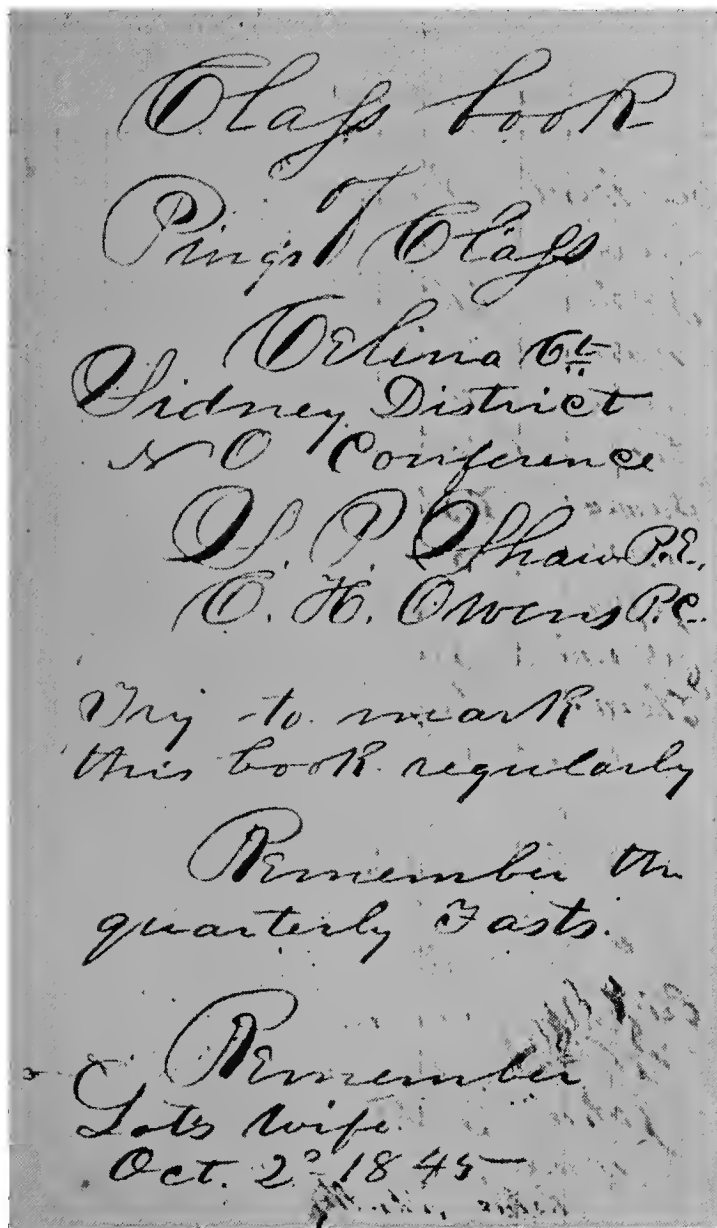 Class book
of
Ping's Class
Celina Ct
Sidney District
N O Conference
S. P. Shaw P.E.
C. H. Owens P.C.
Try to mark
this book regularly
Remember the
quarterly Fasts.
Remember
Lots wife
Oct. 2d 1845